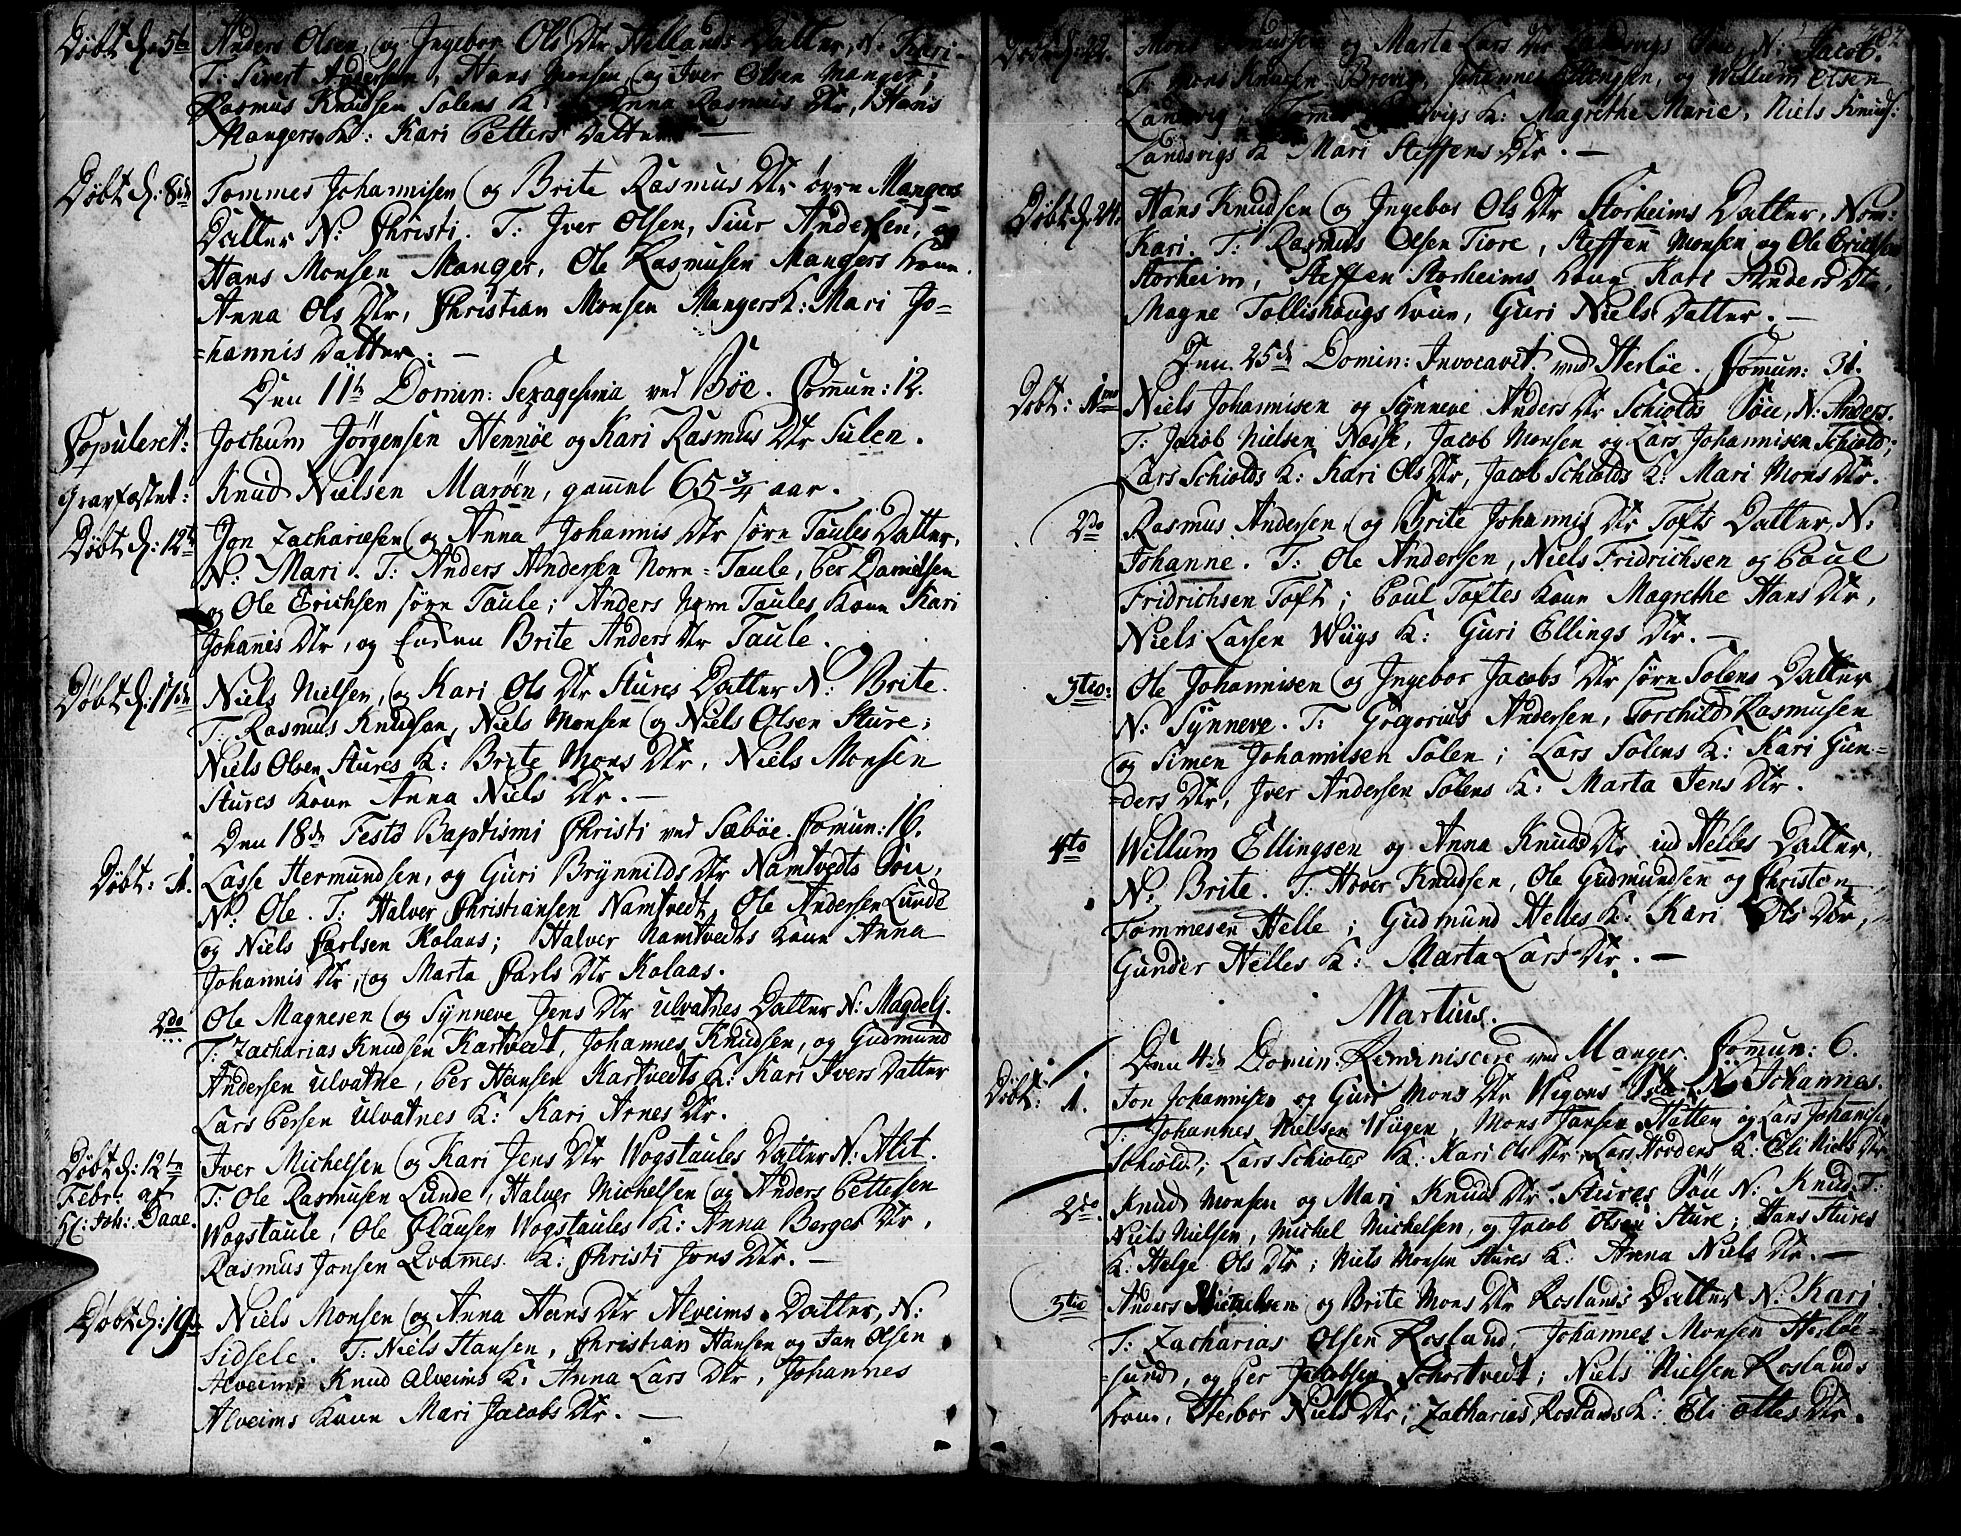 Døbt d: 5te Anders Olsen og Ingebor Ols Dtr Hellands Datter, N: Kari.
T: Sivert Andersen, Hans Monsen og Iver Olsen Manger;
Rasmus Knudsen Solens K: Anna Rasmus Dtr, Hans
Mangers K: Kari Petters Datter. —
Døbt d: 8de Tommes Johannisen og Brite Rasmus Dtr øvre Mangers
Datter N: Christi. T: Iver Olsen, Siur Andersen, og
Hans Monsen Manger, Ole Rasmusen Mangers kone
Anna Ols Dtr, Christian Monsen Mangers K: Mari Jo=
=hannis Datter. —
Den 11te Domin: Sexagesima ved Bøe. Comun: 12.
Copuleret: Jochum Jørgensen Hennøe og Kari Rasmus Dtr Sulen.
Gravfæstet: Knud Nielsen Marøen, gamel 65 3/4 aar.
Døbt d: 12te Jon Zachariesen og Anna Johannis Dtr sørn Taules Datter,
N: Mari. T: Anders Andersen Norn=Taule, Per Danielsen
og Ole Erichsen sørn Taule; Anders Norn Taules kone Kari
Johanis Dtr, og Enken Brite Anders Dtr Taule.
Døbt d: 17de Niels Nielsen, og Kari Ols Dtr Stures Datter N: Brite.
T: Rasmus Knudsen, Niels Monsen og Niels Olsen Sture;
Niels Olsen Stures K: Brite Mons Dtr, Niels Monsen
Stures kone Anna Niels Dtr. —
Den 18de Festo Baptismi Christi ved Sæbøe. Comun: 16.
Døbt: 1. Lasse Hermundsen, og Guri Brynnilds Dtr Namtvedts Søn,
N: Ole. T: Halver Christiansen Namtvedt, Ole Andersen Lunde
og Niels Carlsen Kolaas; Halver Namtvedts kone Anna
Johannis Dtr, og Marta Carls Dtr Kolaas.
2do Ole Magnesen og Synneve Jens Dtr Ulvatnes Datter N: Magdelj.
T: Zacharias Knudsen Kartvedt, Johannes Knudsen, og Gudmund
Andersen Ulvatne, Per Hansen Kartvedts K: Kari Ivers Datter
Lars Persen Ulvatnes K: Kari Arnes Dtr.
Døbt d: 12te Iver Michelsen og Kari Jens Dtr Wogstaules Datter N: Alit.
Febr: af T: Ole Rasmusen Lunde, Halver Michelsen og Anders Pettersen
Hl: Joh: Daae. Wogstaule, Ole Clausen Wogstaules K: Anna Berges Dtr,
Rasmus Jonsen Qvames K: Christi Jons Dtr. —
Døbt d: 19de Niels Monsen og Anna Hans Dtr Alveims Datter, N:
Sidsele. T: Niels Hansen, Christian Hansen og Jan Olsen
Alveim; Knud Alveims K: Anna Lars Dtr, Johannes
Alveims kone Mari Jacobs Dtr. —
202
Døbt d: 22. Mons Knudsen og Marta Lars Dtr Landsvigs Søn, N: Jacob.
T: Mons Knudsen Brovig, Johannes Ellingsen, og Willum Olsen
Landsvig, K: Magrethe Marie, Niels Knuds:
Landsvigs K Mari Steffens Dtr. —
Døbt d: 24. Hans Knudsen og Ingebor Ols Dtr Storheims Datter, Nom:
Kari. T: Rasmus Olsen Tiore, Steffen Monsen og Ole Erichsen
Storheim, Steffen Storheims kone Kari Anders Dtr,
Magne Tollishougs kone, Guri Niels Datter. —
Den 25de Domin: Invocavit. ved Herløe. Comun: 31.
Døbt: 1mo Niels Johannisen og Synneve Anders Dtr Schiolds Søn, N: Anders.
T: Jacob Nielsen Nosse, Jacob Monsen og Lars Johannisen Schiold;
Lars Schiolds K: Kari Ols Dtr, Jacob Schiolds K: Mari Mons Dtr.
2do Rasmus Andersen og Brite Johannis Dtr Tofts Datter, N:
Johanne. T: Ole Andersen, Niels Fridrichsen og Poul
Fridrichsen Toft; Poul Toftes kone Magrethe Hans Dtr,
Niels Larsen Wiigs K: Guri Ellings Dtr. —
3tio: Ole Johannisen og Ingebor Jacobs Dtr sørn Solens Datter
N: Synneve. T: Gregorius Andersen, Torchild Rasmusen
og Simen Johannisen Solen; Lars Solens K: Kari Gun=
=ders Dtr, Iver Andersen Solens K: Marta Jens Dtr.
4to Willum Ellingsen og Anna Knuds Dtr ind Helles Datter,
N: Brite. T: Hover Knudsen, Ole Gudmundsen og Christen
Tommesen Helle; Gudmund Helles K: Kari Ols Dtr,
Gunder Helles K: Marta Lars Dtr. —
Martius.
Den 4de Domin: Reminiscere ved Manger. Comun: 6.
Døbt: 1. Jon Johannisen og Guri Mons Dtr Wigens Søn N: Johannes.
T: Johannes Nielsen Wiigen, Mons Jansen Hatten og Lars Johannisen
Schiold; Lars Schioldes K: Kari Ols Dtr, Lars Hordens K: Eli Niels Dtr
2do. Knud Monsen og Mari Knuds Dtr Stures Søn N: Knud. T:
Niels Nielsen, Michel Michelsen, og Jacob Olsen Sture; Hans Stures
K: Helge Ols Dtr, Niels Monsen Stures K: Anna Niels Dtr. —
3tio Anders Michelsen og Brite Mons Dtr Roslands Datter N: Kari.
T: Zacharias Olsen Rosland, Johannes Monsen Herløe=
=sund, og Per Jacobsen Schortvedt; Niels Nielsen Roslands
kone, Herbor Niels Dtr, Zacharias Roslands K: Eli Ottes Dtr.